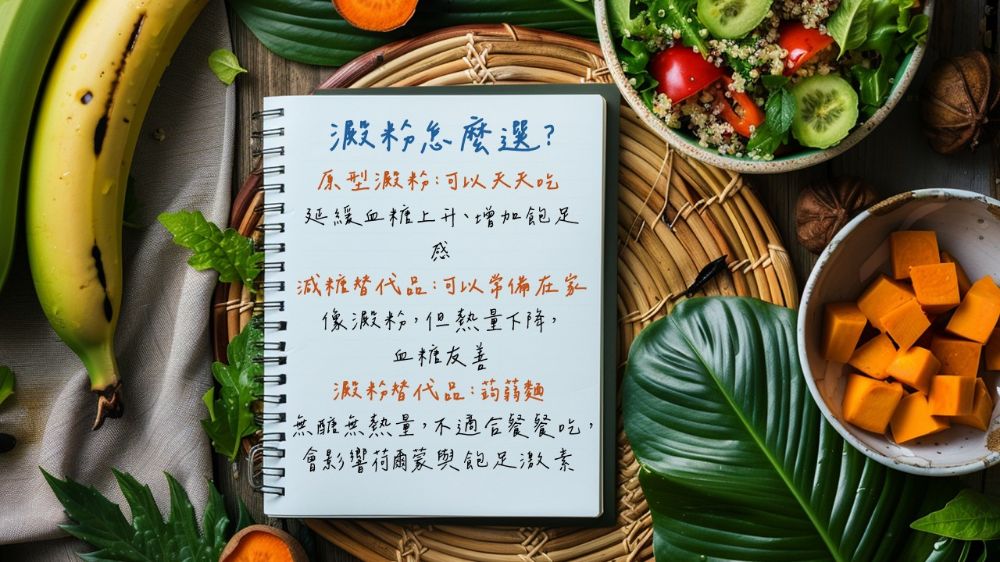 澱粉怎麼選?
原型澱粉:可以天天吃
延緩血糖上升、增加飽足
感
減糖替代品:可以常備在家
像澱粉,但熱量下降,
血糖友善
澱粉替代品:蒟蒻麵
無醣無熱量,不適合餐餐吃,
會影響荷爾蒙與飽足激素